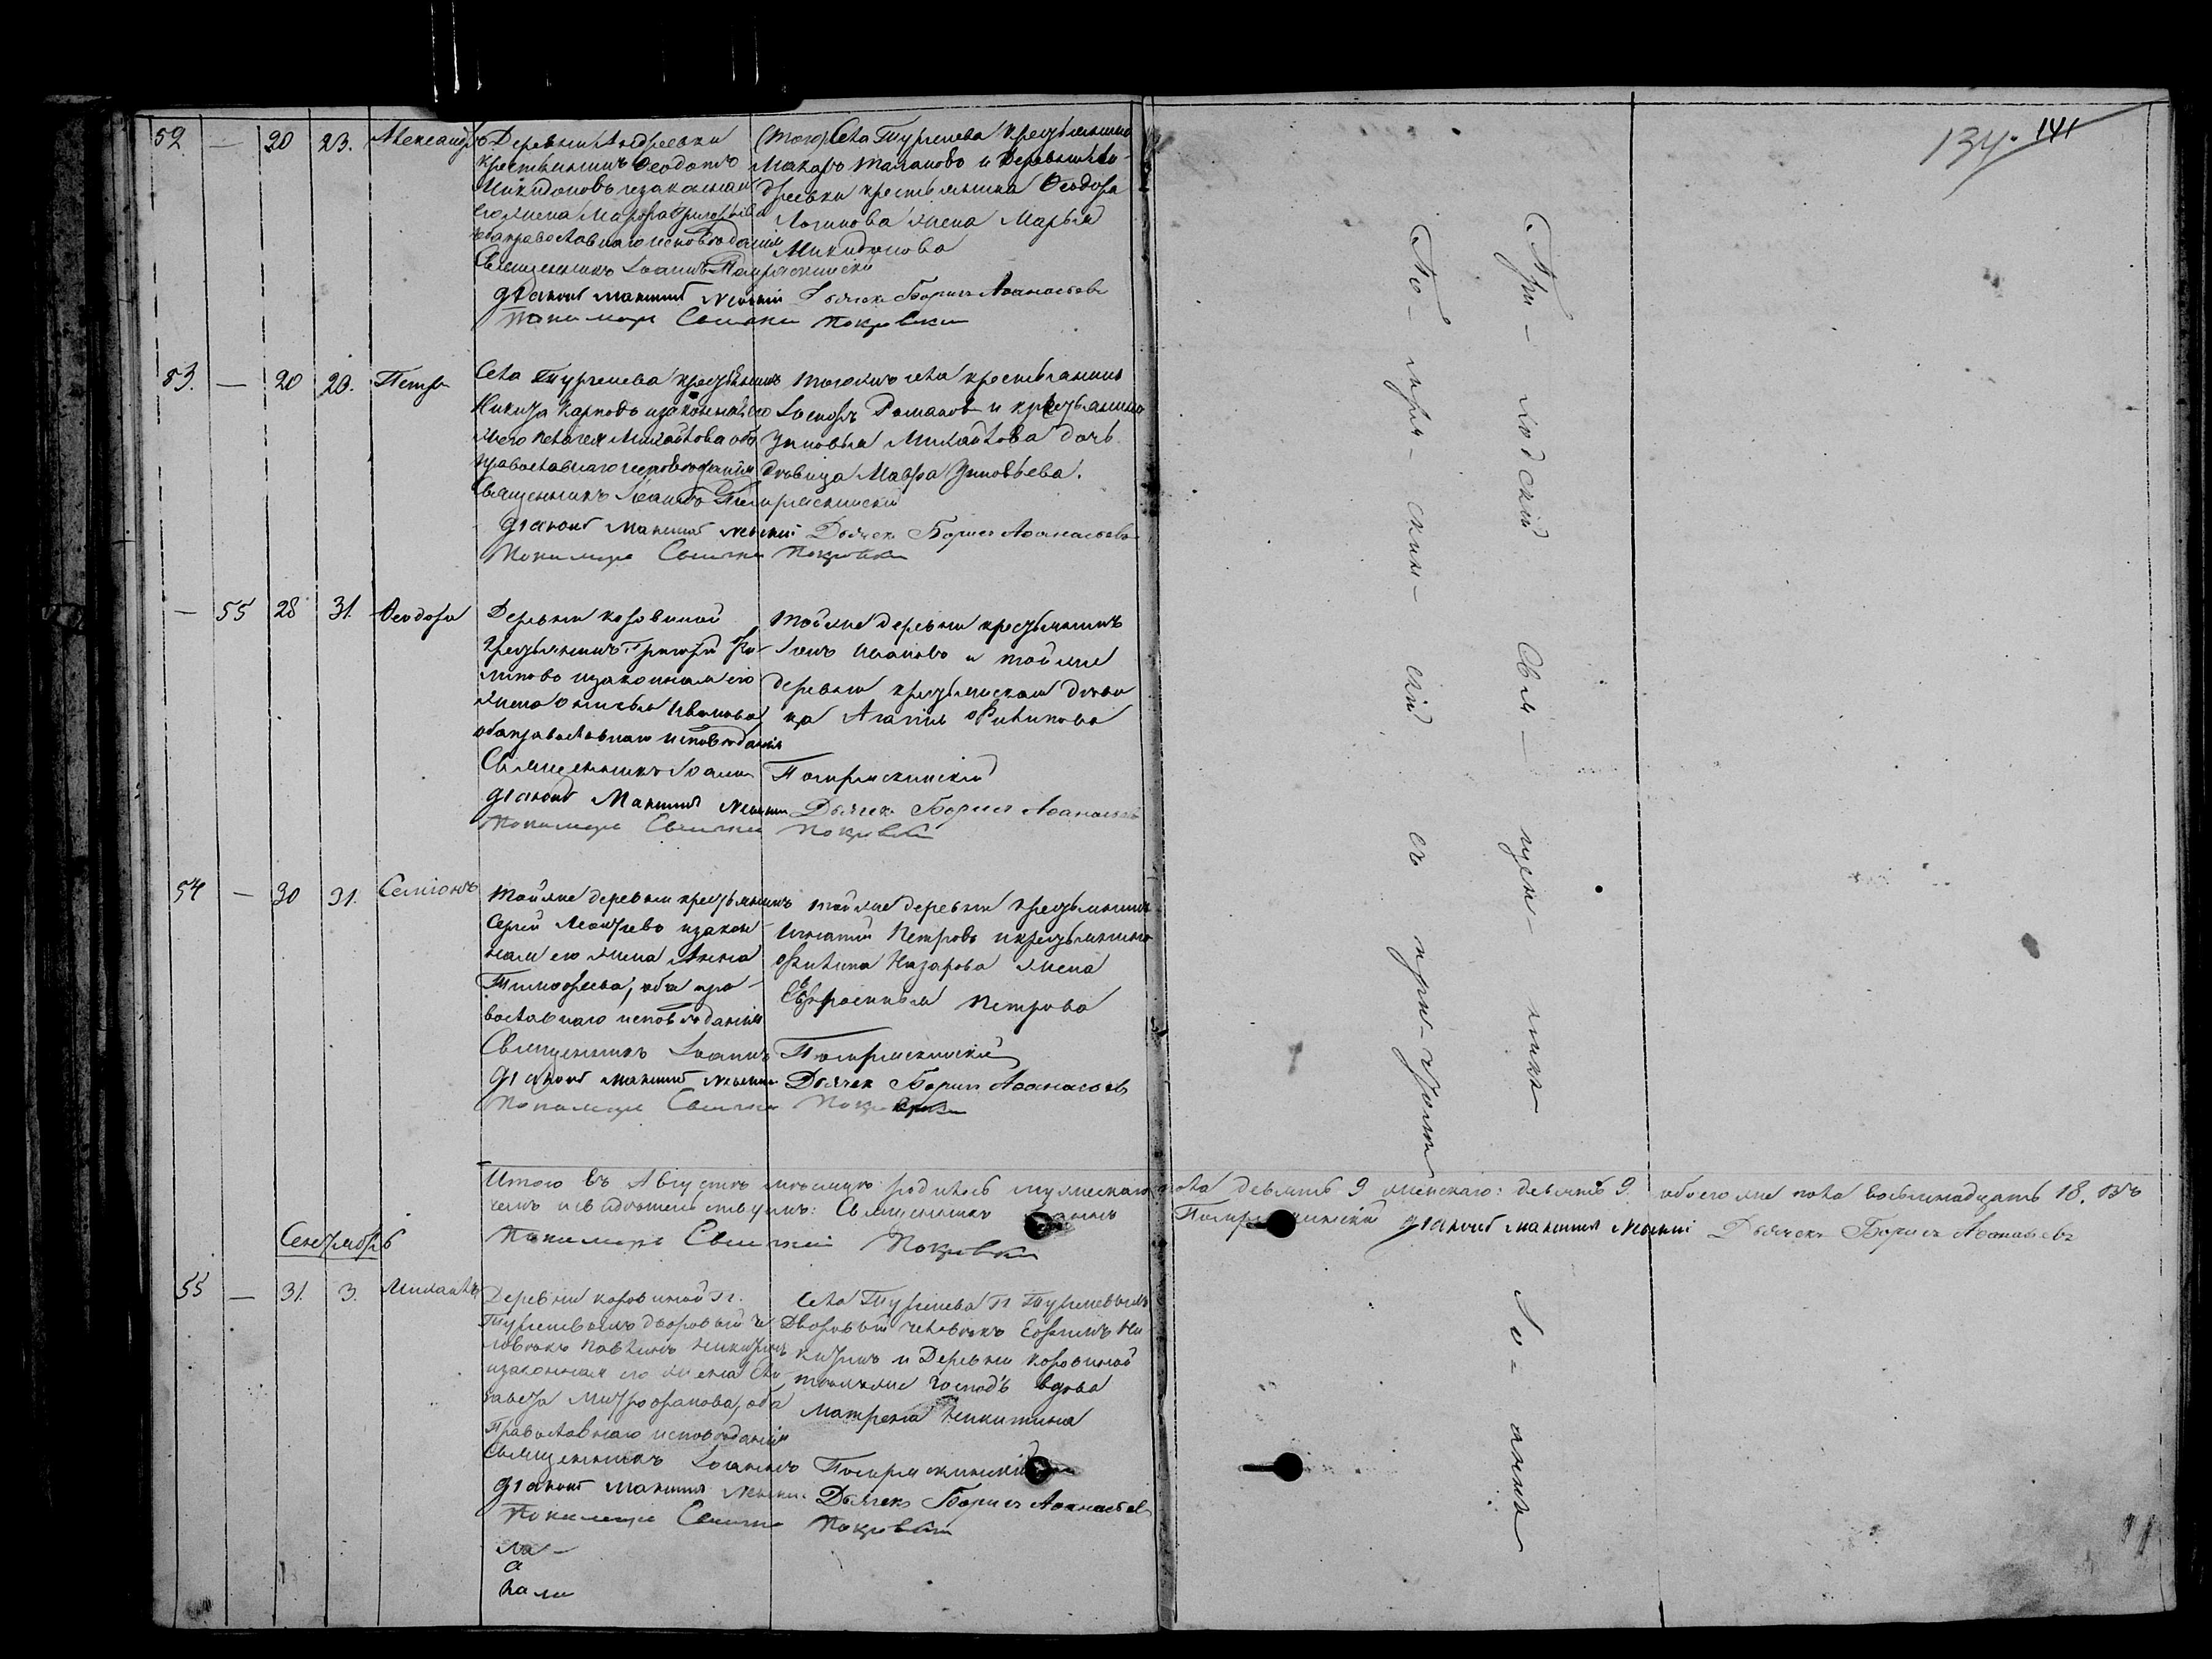 134. 141
52 — 20 23. Александръ Деревни Андреевки
крестьянинъ Ѳеодотъ
Никифоровъ и законная
его жена Марфа Григорьева
оба православнаго исповѣданія
(того) Села Тургенева крестьянинъ
Макаръ и деревни Ан-
дреевки крестьянина Ѳеодора
Логинова жена Марья
Никифорова
Священникъ Іоаннъ Помряскинскій
Діаконъ Максимъ Дьячекъ Борисъ Аѳанасьевъ
Пономарь Покровскій
53. — 20 20. Петръ
Села Тургенева крестьянинъ
Никита Карповъ и законная его
жена Пелагея Михайлова оба
православнаго исповѣданія
Тогоже села крестьянинъ
Романовъ и крестьянина
Зиновья Михайлова дочь
дѣвица Мавра Зиновьева.
Священникъ Іоаннъ Помряскинскій
Діаконъ Максимъ Дьячекъ Борисъ Аѳанасьевъ
Пономарь Покровскій
— 55 28 31. Ѳеодора
Деревни Коровиной
крестьянинъ Григорій Фи-
липовъ и законная его
жена Иванова
оба православнаго исповѣданія
Тойже деревни крестьянинъ
Ивановъ и тойже
деревни крестьянская дѣви-
ца Агапія Филипова
Священникъ Іоаннъ Помряскинскій
Діаконъ Максимъ Дьячекъ Борисъ Аѳанасьевъ
Пономарь Покровскій
54 — 30 31. Симіонъ
Тойже деревни крестьянинъ
Сергей Леонтьевъ и закон-
ная его жена Анна
Тимофеева, оба пра-
вославнаго исповѣданія
Тойже деревни крестьянинъ
Игнатій Петровъ и крестьянина
Филипа Назарова жена
Евфросинья Петрова
Священникъ Іоаннъ Помряскинскій
Діаконъ Максимъ Дьячекъ Борисъ Аѳанасьевъ
Пономарь Покровскій
Итого въ Августѣ мѣсяцѣ родилось мужескаго пола девять 9 женскаго: девять 9. обоего же пола восемнадцать 18. Въ
чемъ и свидѣтельствуемъ: Священникъ Іоаннъ Помряскинскій Діаконъ Максимъ Дьячекъ Борисъ Аѳанасьевъ
Пономарь Покровскій
Сентябрь
55 — 31. 3. Михаилъ
Деревни Коровиной Гг.
Тургеневыхъ дворовый че-
ловѣкъ Павлинъ Никитинъ
и законная его жена Ели-
завета Митрофанова, оба
Православнаго исповѣданія
Села Тургенева Гг. Тургеневыхъ
Дворовый человѣкъ Ефимъ Ни-
китинъ и Деревни Коровиной
техже Господъ вдова
Матрена Никитина
Священникъ Іоаннъ Помряскинскій
Діаконъ Максимъ Дьячекъ Борисъ Аѳанасьевъ
Пономарь Покровскій
При- ходскій Свя- щен- никъ Іо- аннъ
По- мря- скин- скій съ при- чтомъ